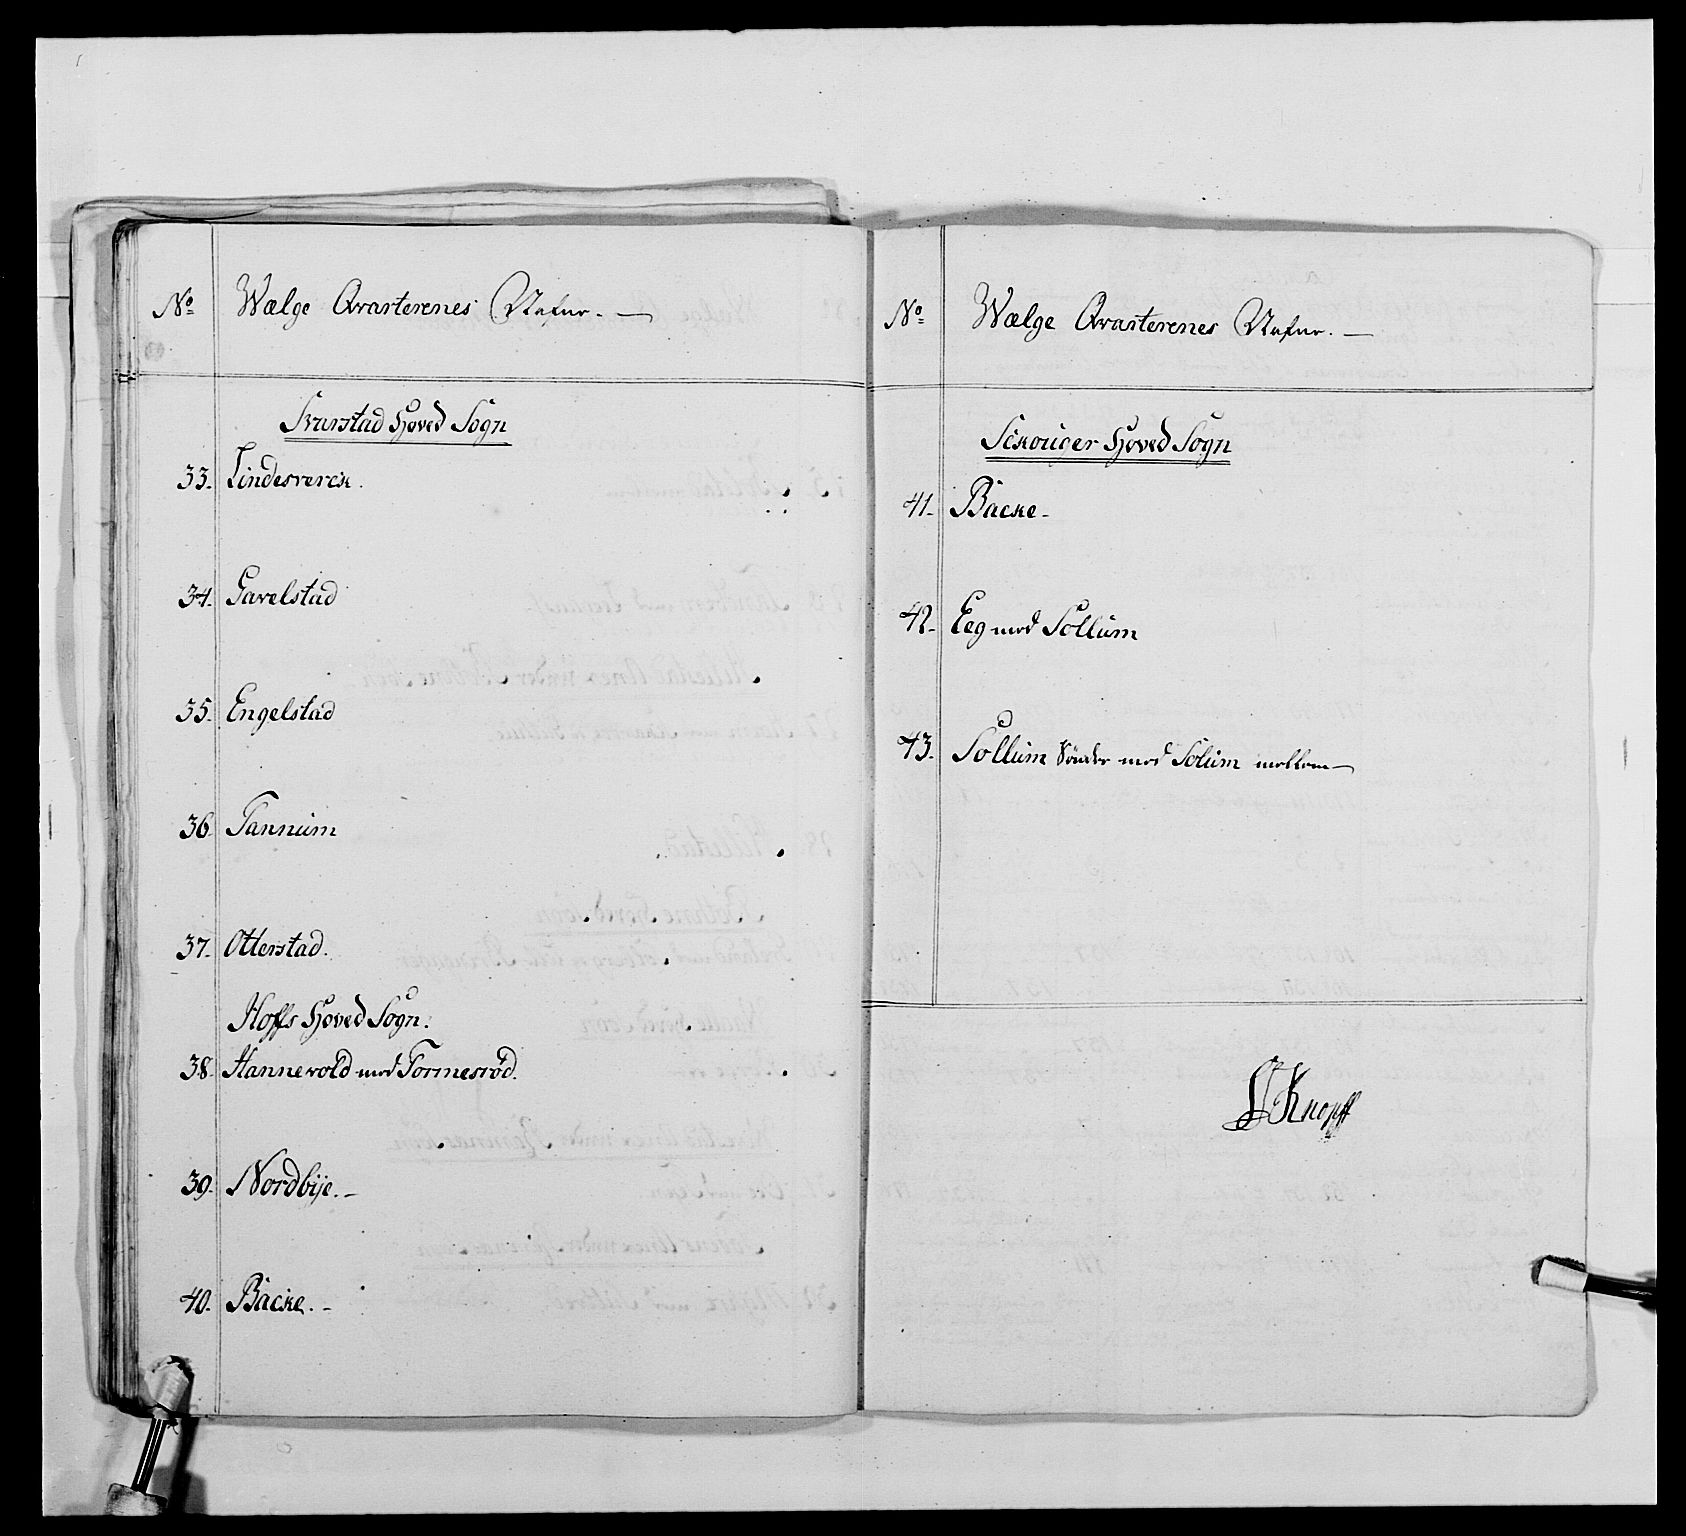 No
Wælge Qvarterenes Nafne. —
Svarstad Hoved Sogn
33. Lindesverck.
34. Gavelstad
35. Engelstad
36. Tannum
37. Otterstad.
Hoffs Hoved Sogn.
38. Hannevold med Tormesröd.
39. Nordbÿe. -
40. Backe. -
No
Wælge Qvarterenes Nafne. —
Sckouger Hoved Sogn
41. Backe -
42. Eeg med Sollum
43. Sollum Sönder med Solum mellem —
Knopff